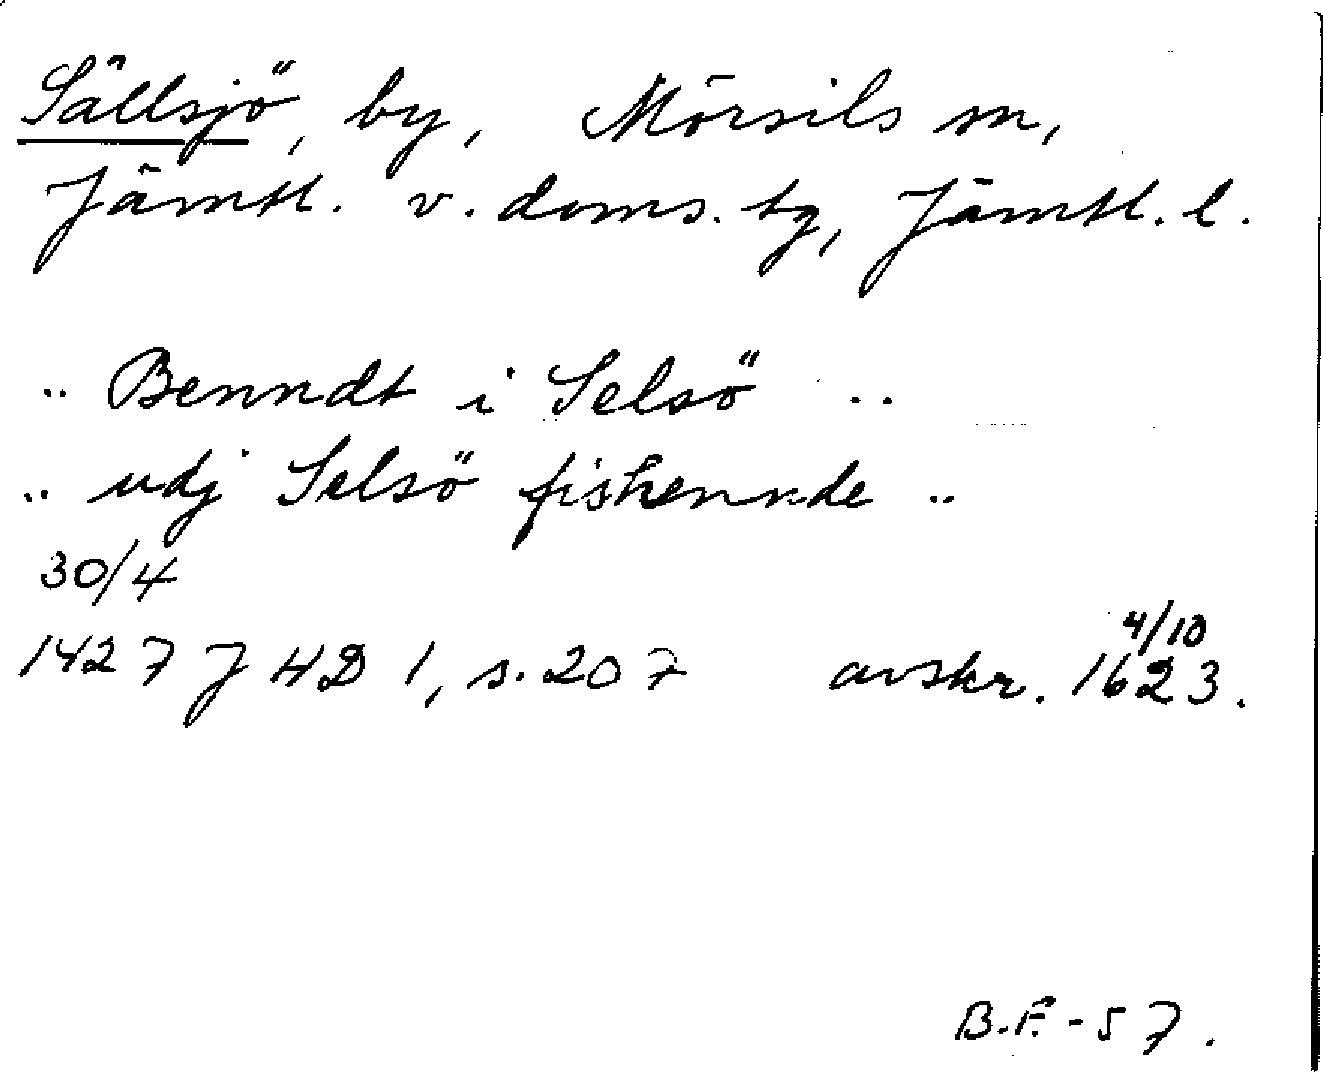 Sällsjö, by, Mörsils sn,
Jämtl. v. doms. tg, Jämtl. l.
.. Benndt i Selsö ..
.. udj Selsö fiskennde ..
30/4
1427 JHD 1, s. 207 avskr. 4/10 1623.
B.F. -57.